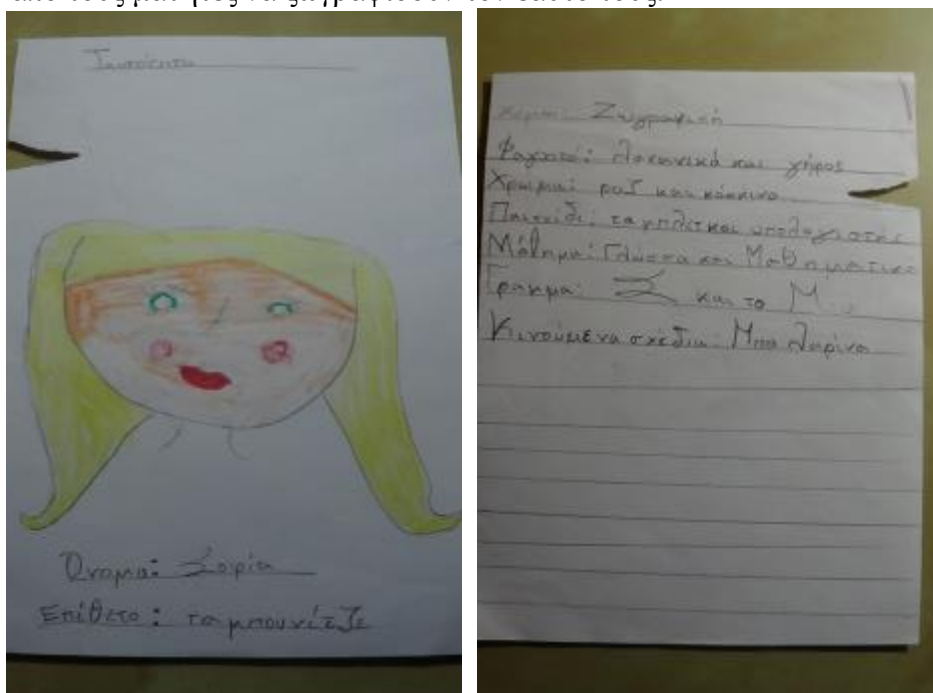 Ταυτότητα
Όνομα: Σοφία
Επίθετο: ταμπουνίτζε
Χόμπι: Ζωγραφική
Φαγητό: λακωνικά και γύρος
Χρώμα: ροζ και κόκκινο
Παιχνίδι: ταμπλετ και υπολογιστής
Μάθημα: Γλώσσα και Μαθηματικα
Γράμμα: Σ και το Μ
Κινούμενα σχέδια: Μπαλαρίνα